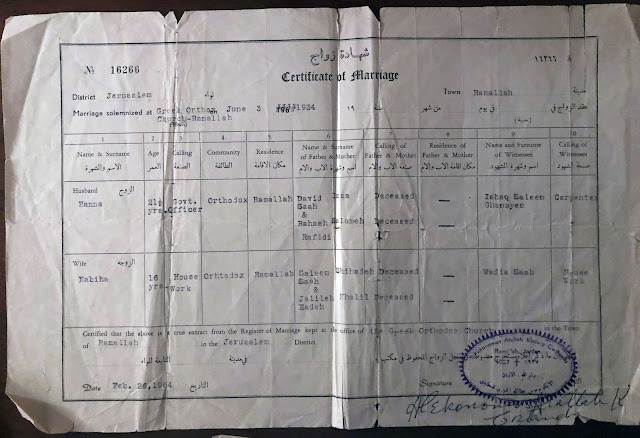 شهادة زواج
№ 16266 ١٦٢٦٦ №
Certificate of Marriage
District Jerusalem لواء Town Ramallah مدينة
Marriage solemnized at Greek Orthox. June 3 1934 ١٩ سنة من شهر في يوم عقد الزواج في
Church-Ramallah
1 2 3 4 5 6 7 8 9 10
Name & Surname Age Calling Community Residence Name & Surname of Father & Mother Calling of Father & Mother Residence of Father & Mother Name and Surname of Witnesses Calling of Witnesses
الاسم والشهرة العمر الصنعة الطائفة مكان الاقامة اسم وشهرة الاب والام صنعة الاب والام مكان اقامة الاب والام اسم وشهرة الشهود صنعة الشهود
Husband الزوج
Hanna 21½ Govt. Orthodox Ramallah David Issa Deceased — Ishaq Saleem Carpenter
yrs. Officer Saah Ghanayem
&
Rahmeh Salameh Deceased —
Rafidi
Wife الزوجة
Nabiha 16 House Orhtodox Ramallah Saleem Shihadeh Deceased — Wadia Saah House
yrs. Work Saah Work
&
Jalileh Khalil Deceased —
Hadeh
Certified that the above is a true extract from the Register of Marriage kept at the office of the Greek Orthodox Church in the Town
of Ramallah in the Jerusalem District
في مدينة التابعة للواء
Date Feb. 26, 1964 التاريخ Signature